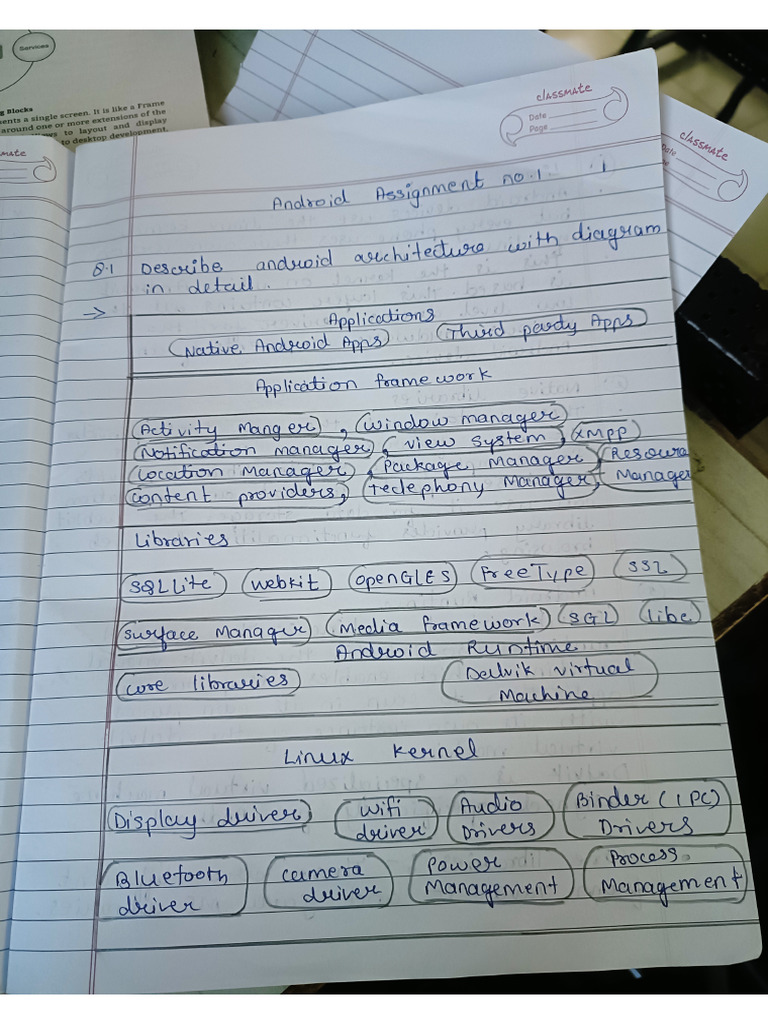 Services
g Blocks
ents a single screen. It is like a Frame
around one or more extensions of the
ws to layout and display
to desktop development,
mate
classmate
Date
Page
classmate
Date
Android Assignment no. 1 1
Q.1 Describe android architecture with diagram
in detail.
→
Applications
Native Android Apps Third pardy Apps
Application framework
Activity Manger, window manager
Notification manager, view system, XMPP
Location Manager, Package Manager, Resource
content providers, Teclephony Manager, Manager
Libraries
SQLLite webkit OpenGLES FreeType SSL
Surface Manager Media framework SGL Libc
Android Runtime
core libraries Dalvik virtual
Machine
Linux Kernel
Display driver Wifi driver Audio Drivers Binder (IPC) Drivers
Bluetooth driver camera driver Power Management Process Management